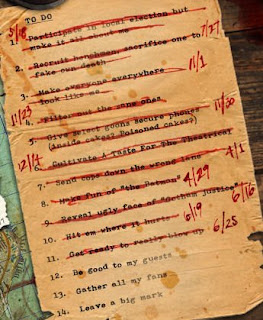 TO DO
5/18
1. Participate in local election but
make it all about me 7/27
2. Recruit henchmen, sacrifice one to
fake own death 11/1
3. Make everyone everywhere
look like me
11/23 4. Filter out the sane ones 11/30
5. Give select goons Secure phones
(Inside cakes? Poisoned cakes?)
12/4 6. Cultivate A Taste For The Theatrical
7. Send cops down the 4/1
8. Make fun of "the Batman" 4/29
9. Reveal ugly face of "Gotham Justice" 6/16
10. Hit em where it hurts 6/19
11. Get ready to really blow up 6/25
12. Be good to my guests
13. Gather all my fans
14. Leave a big mark